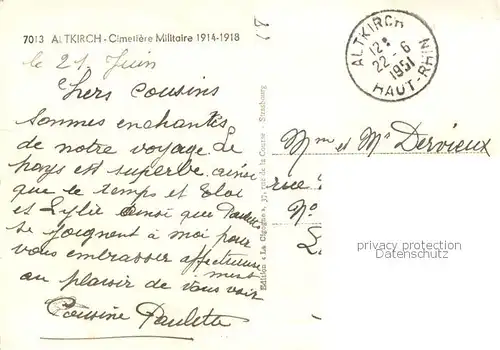 7013 ALTKIRCH - Cimetière Militaire 1914-1918
le 21 Juin
Chers Cousins
Sommes enchantés
de notre voyage. Le
pays est superbe ainsi
que le temps et
et ainsi que
se joignent à moi pour
vous embrasser affectueuse
ment
au plaisir de vous voir
Cousine Paulette
Edition « La Cigogne », 37, rue de la Course - Strasbourg
ALTKIRCH
12
22-6
1951
HAUT-RHIN
Mme et Mr Dervieux
rue
No
privacy protection
Datenschutz